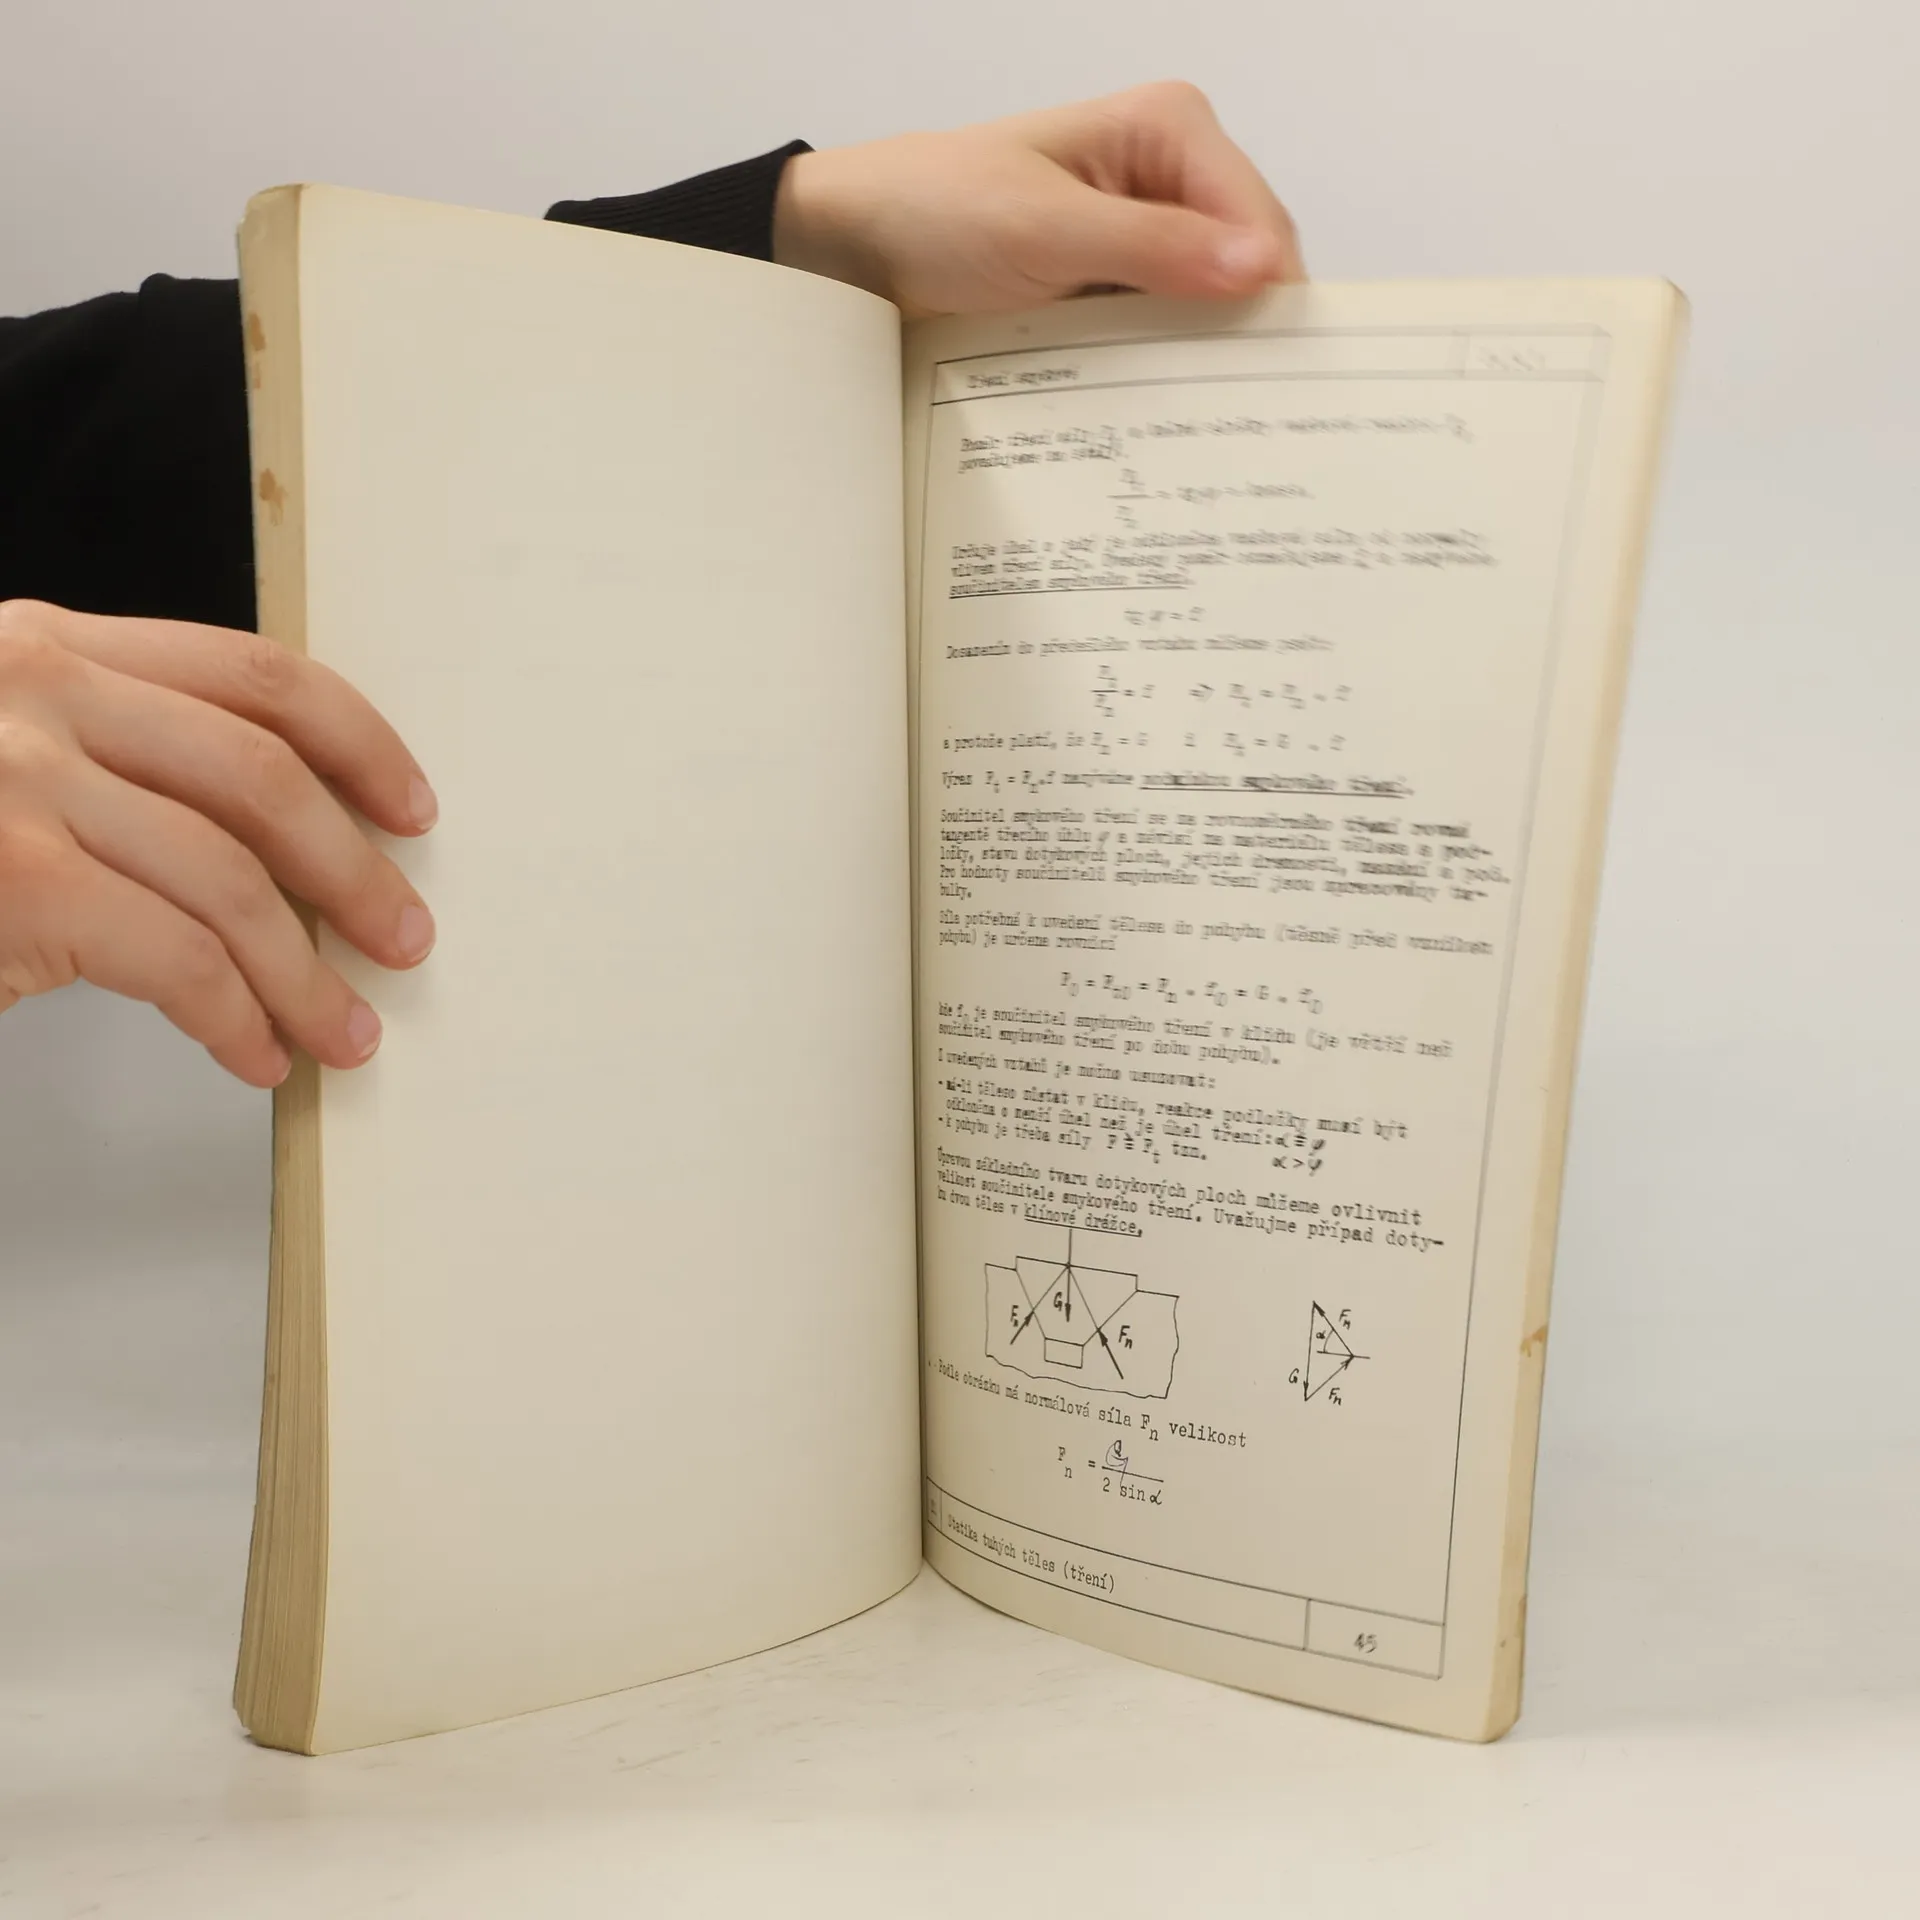 Tření smykové
považujeme za stálý.
součinitelem smykového tření.
tg φ = f
Dosazením do předešlého vztahu můžeme psát:
F_t / F_n = f => F_t = F_n . f
a protože platí, že F_n = G i F_t = G . f
Výraz F_t = F_n.f nazýváme zákonem smykového tření.
Součinitel smykového tření se za rovnoměrného tření rovná
tangentě třecího úhlu φ a závisí na materiálu tělesa a pod-
ložky, stavu dotykových ploch, jejich drsnosti, mazání a pod.
Pro hodnoty součinitelů smykového tření jsou zpracovány ta-
bulky.
Síla potřebná k uvedení tělesa do pohybu (těsně před vznikem
pohybu) je určena rovnicí
F_0 = F_t0 = F_n . f_0 = G . f_0
kde f_0 je součinitel smykového tření v klidu (je větší než
součinitel smykového tření po dobu pohybu).
Z uvedených vztahů je možno usuzovat:
- má-li těleso zůstat v klidu, reakce podložky musí být
odkloněna o menší úhel než je úhel tření: α ≦ φ
- k pohybu je třeba síly F ≧ F_t tzn. α > φ
Úpravou základního tvaru dotykových ploch můžeme ovlivnit
velikost součinitele smykového tření. Uvažujme případ doty-
ku dvou těles v klínové drážce.
F_n G F_n
F_n
α
G
F_n
Podle obrázku má normálová síla F_n velikost
F_n = G / 2 sin α
Statika tuhých těles (tření)
45